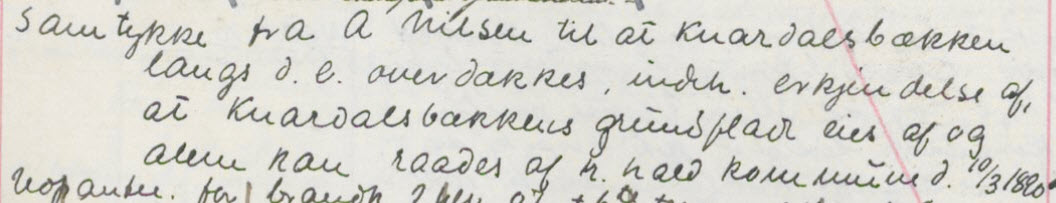 Samtykke fra A Nilsen til at Knardalsbækken
langs d. e. overdækkes, indeh. erkjendelse af,
at Knardalsbækkens grundflade eies af og
alene kan raades af h. kommune d. 10/3 1890
for